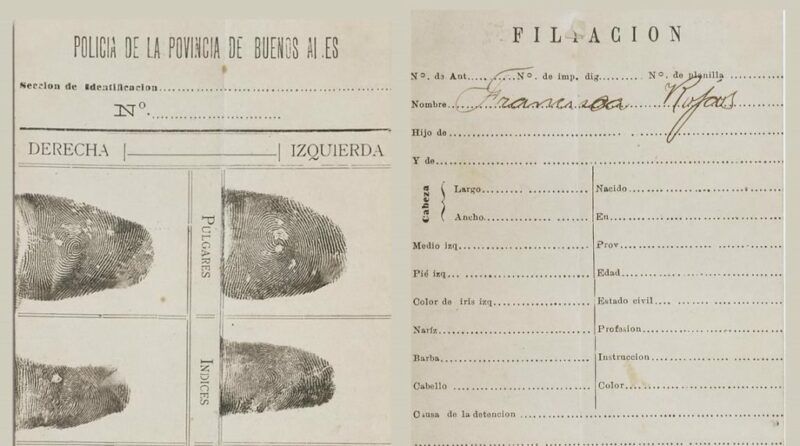 POLICIA DE LA POVINCIA DE BUENOS AI.ES
Seccion de Identificacion
Nº.
DERECHA |————| IZQUIERDA
PULGARES
INDICES
FILIACION
Nº. de Ant. Nº. de imp. dig. Nº. de planilla
Nombre Francisca Rojas
Hijo de
Y de
Cabeza { Largo
Ancho
Medio izq
Pié izq
Color de iris izq
Naríz
Barba
Cabello
Nacido
En
Prov
Edad
Estado civil
Profesion
Instruccion
Color
Causa de la detencion